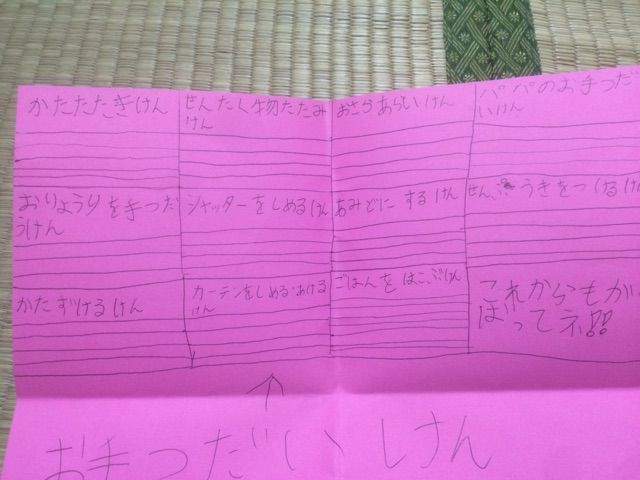 かたたたきけん
せんたく物たたみ
けん
おさらあらいけん
パパのお手つだ
いけん
おりょうりを手つだ
うけん
シャッターをしめるけん
あみどにするけん
せんぷうきをつけるけん
かたずけるけん
カーテンをしめる・あける
けん
ごはんをはこぶけん
これからもがん
ばってネ!!
お手つだいけん